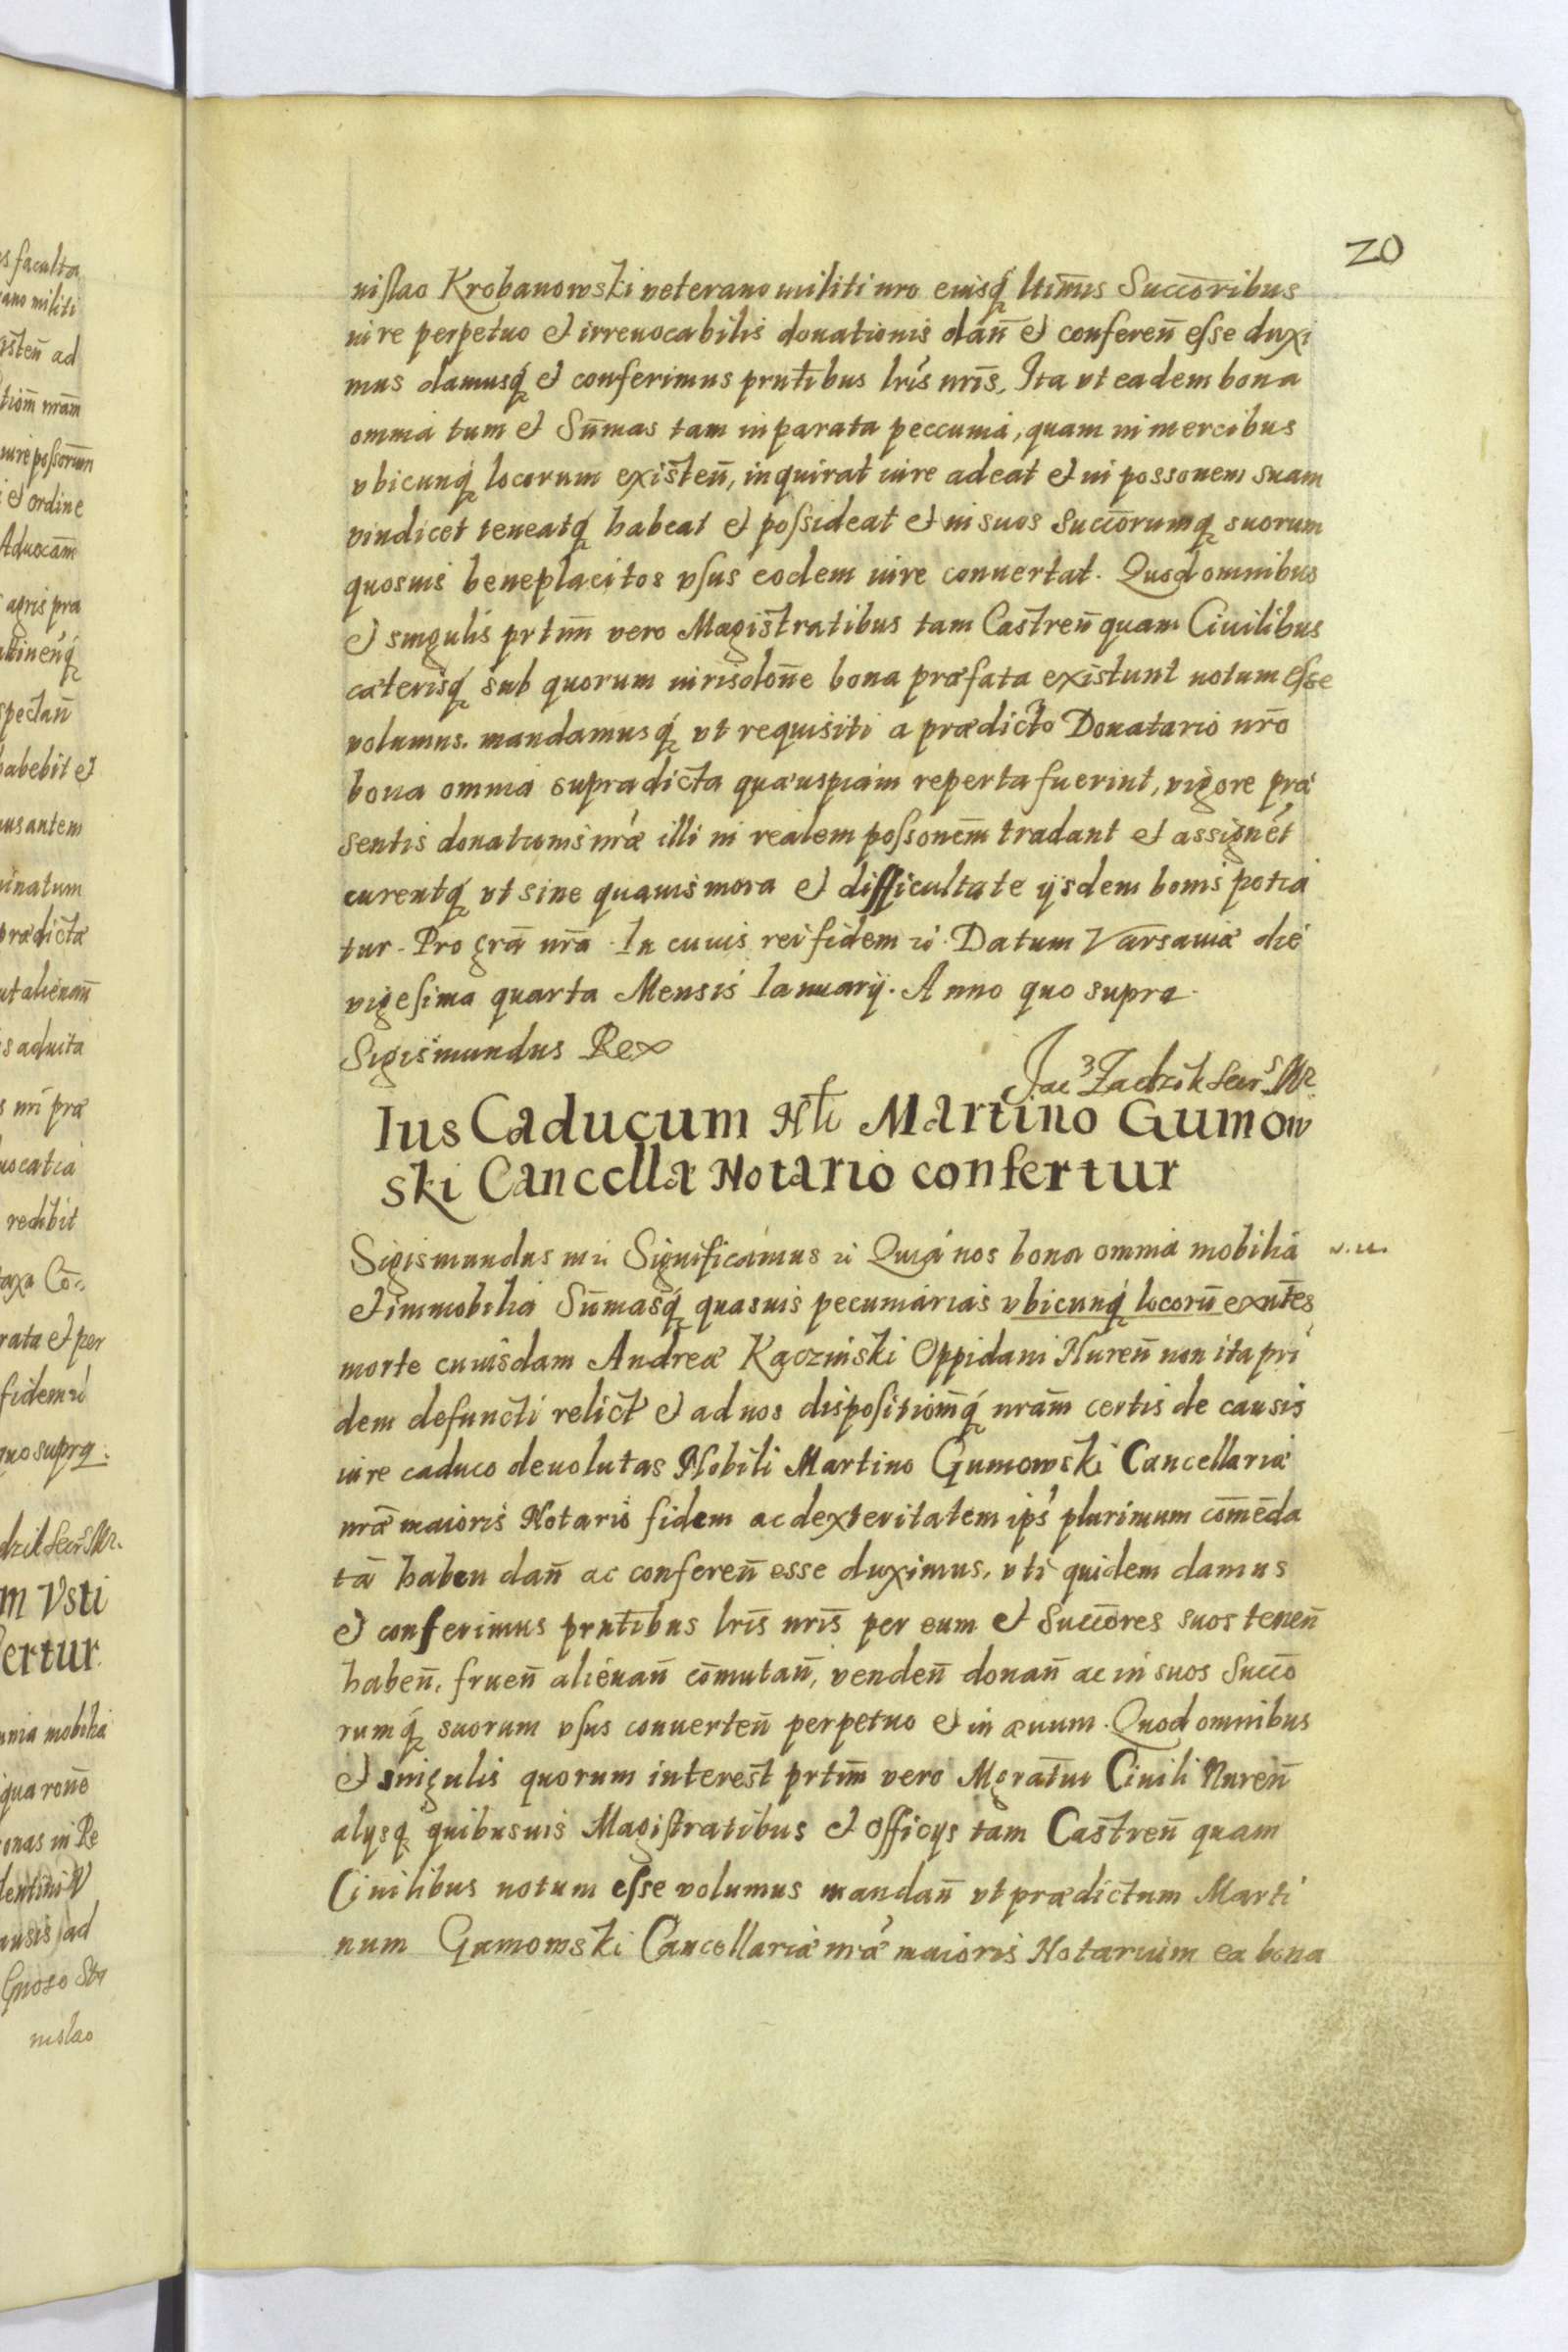 20
niſlao Krobanowski veterano militi nro eiusq́ ltimis Succoribus
iure perpetuo et irreuocabilis donationis dan̄ et conferen̄ eſse duxi
mus damusq́ et conferimus pntibus lris nris. Ita vt eadem bona
omnia tum et Sum̄as tam in parata peccunia, quam in mercibus
vbicunq́ locorum existen̄, inquirat iure adeat et in possonem suam
vindicet teneatq́ habeat et poſsideat et in suos Succorumq suorum
quosuis beneplacitos vſus eodem iure conuertat. Quod omnibus
et singulis prtim̄ vero Magistratibus tam Castren̄ quam Ciuilibus
cæterisq́ sub quorum iurisdone bona præfata existunt notum eſse
volumus. mandamusq́ vt requisiti a prædicto Donatario nro
bona omnia supradicta quæuspiam reperta fuerint, vigore præ
sentis donationis nræ illi in realem poſsonem̄ tradant et assignēt
curentq́ vt sine quauis mora et difficultate ijsdem bonis potia
tur. Pro grā nrā. In cuius rei fidem ꝛc. Datum Varsauiæ die
vigeſima quarta Mensis Ianuarij. Anno quo supra.
Sigismundus Rex
Jac Zadzik Secr S Mr
Ius Caducum Nti Martino Gumow
ski Cancellæ Notario confertur
Sigismundus ꝛc Significamus ꝛc Quia nos bona omnia mobilia
et immobilia Sum̄asq́ quasuis pecuniarias vbicunq́ locorū exntes
morte cuiusdam Andreæ Kaczinski Oppidani Nuren̄ non ita pri
dem defuncti relict et ad nos dispoſitiom̄q́ nram̄ certis de causis
iure caduco deuolutas Nobili Martino Gumowski Cancellariæ
nræ maioris Notario fidem ac dexteritatem ips plurimum com̄eda
tā haben dan̄ ac conferen̄ esse duximus, vti quidem damus
et conferimus pntibus lris nris per eum et Succores suos tenen̄
haben̄, fruen̄ alienan̄ com̄utan̄, venden̄ donan̄ ac in suos Succo
rumq́ suorum vſus conuerten̄ perpetuo et in æuum. Quod omnibus
et singulis quorum interest prtim̄ vero Mgratui Ciuili Nuren̄
alijsq́ quibusuis Magiſtratibus et officijs tam Castren̄ quam
Ciuilibus notum eſse volumus mandan̄ vt prædictum Marti
num Gumowski Cancellariæ nræ maioris Notarium ea bona